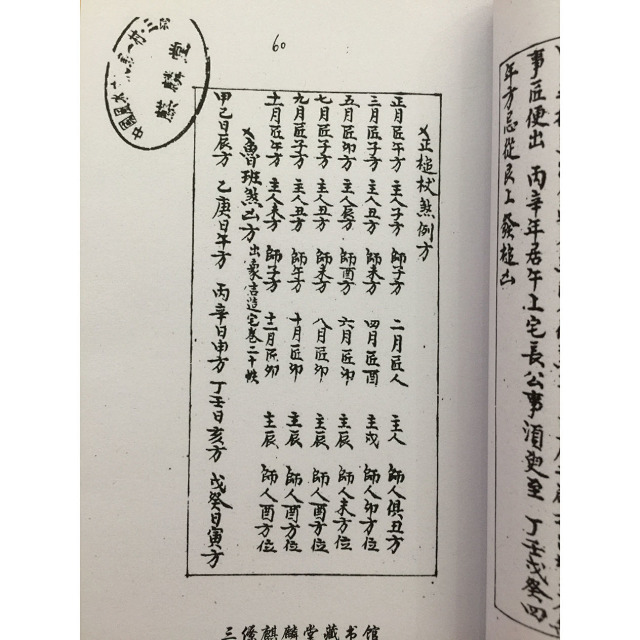 60
事匠便出 丙辛年居午上宅長公事須更至 丁壬戊癸四
年方忌從艮上發槌凶
乂正槌杖煞例方
正月匠午方 主人子方 師子方 二月匠人 主人 師人俱丑方
三月匠子方 主人丑方 師未方 四月匠酉 主戌 師人卯方位
五月匠卯方 主人辰方 師酉方 六月匠卯 主辰 師人未方位
七月匠子方 主人丑方 師未方 八月匠卯 主辰 師人酉方位
九月匠子方 主人丑方 師午方 十月匠卯 主辰 師人酉方位
十一月匠午方 主人未方 師子方 十二月匠卯 主辰 師人酉方位
乂魯班煞凶方 出象吉造宅卷二十帙
甲己日辰方 乙庚日午方 丙辛日申方 丁壬日亥方 戊癸日寅方
中國風水
麒麟堂
三僚麒麟堂藏书馆